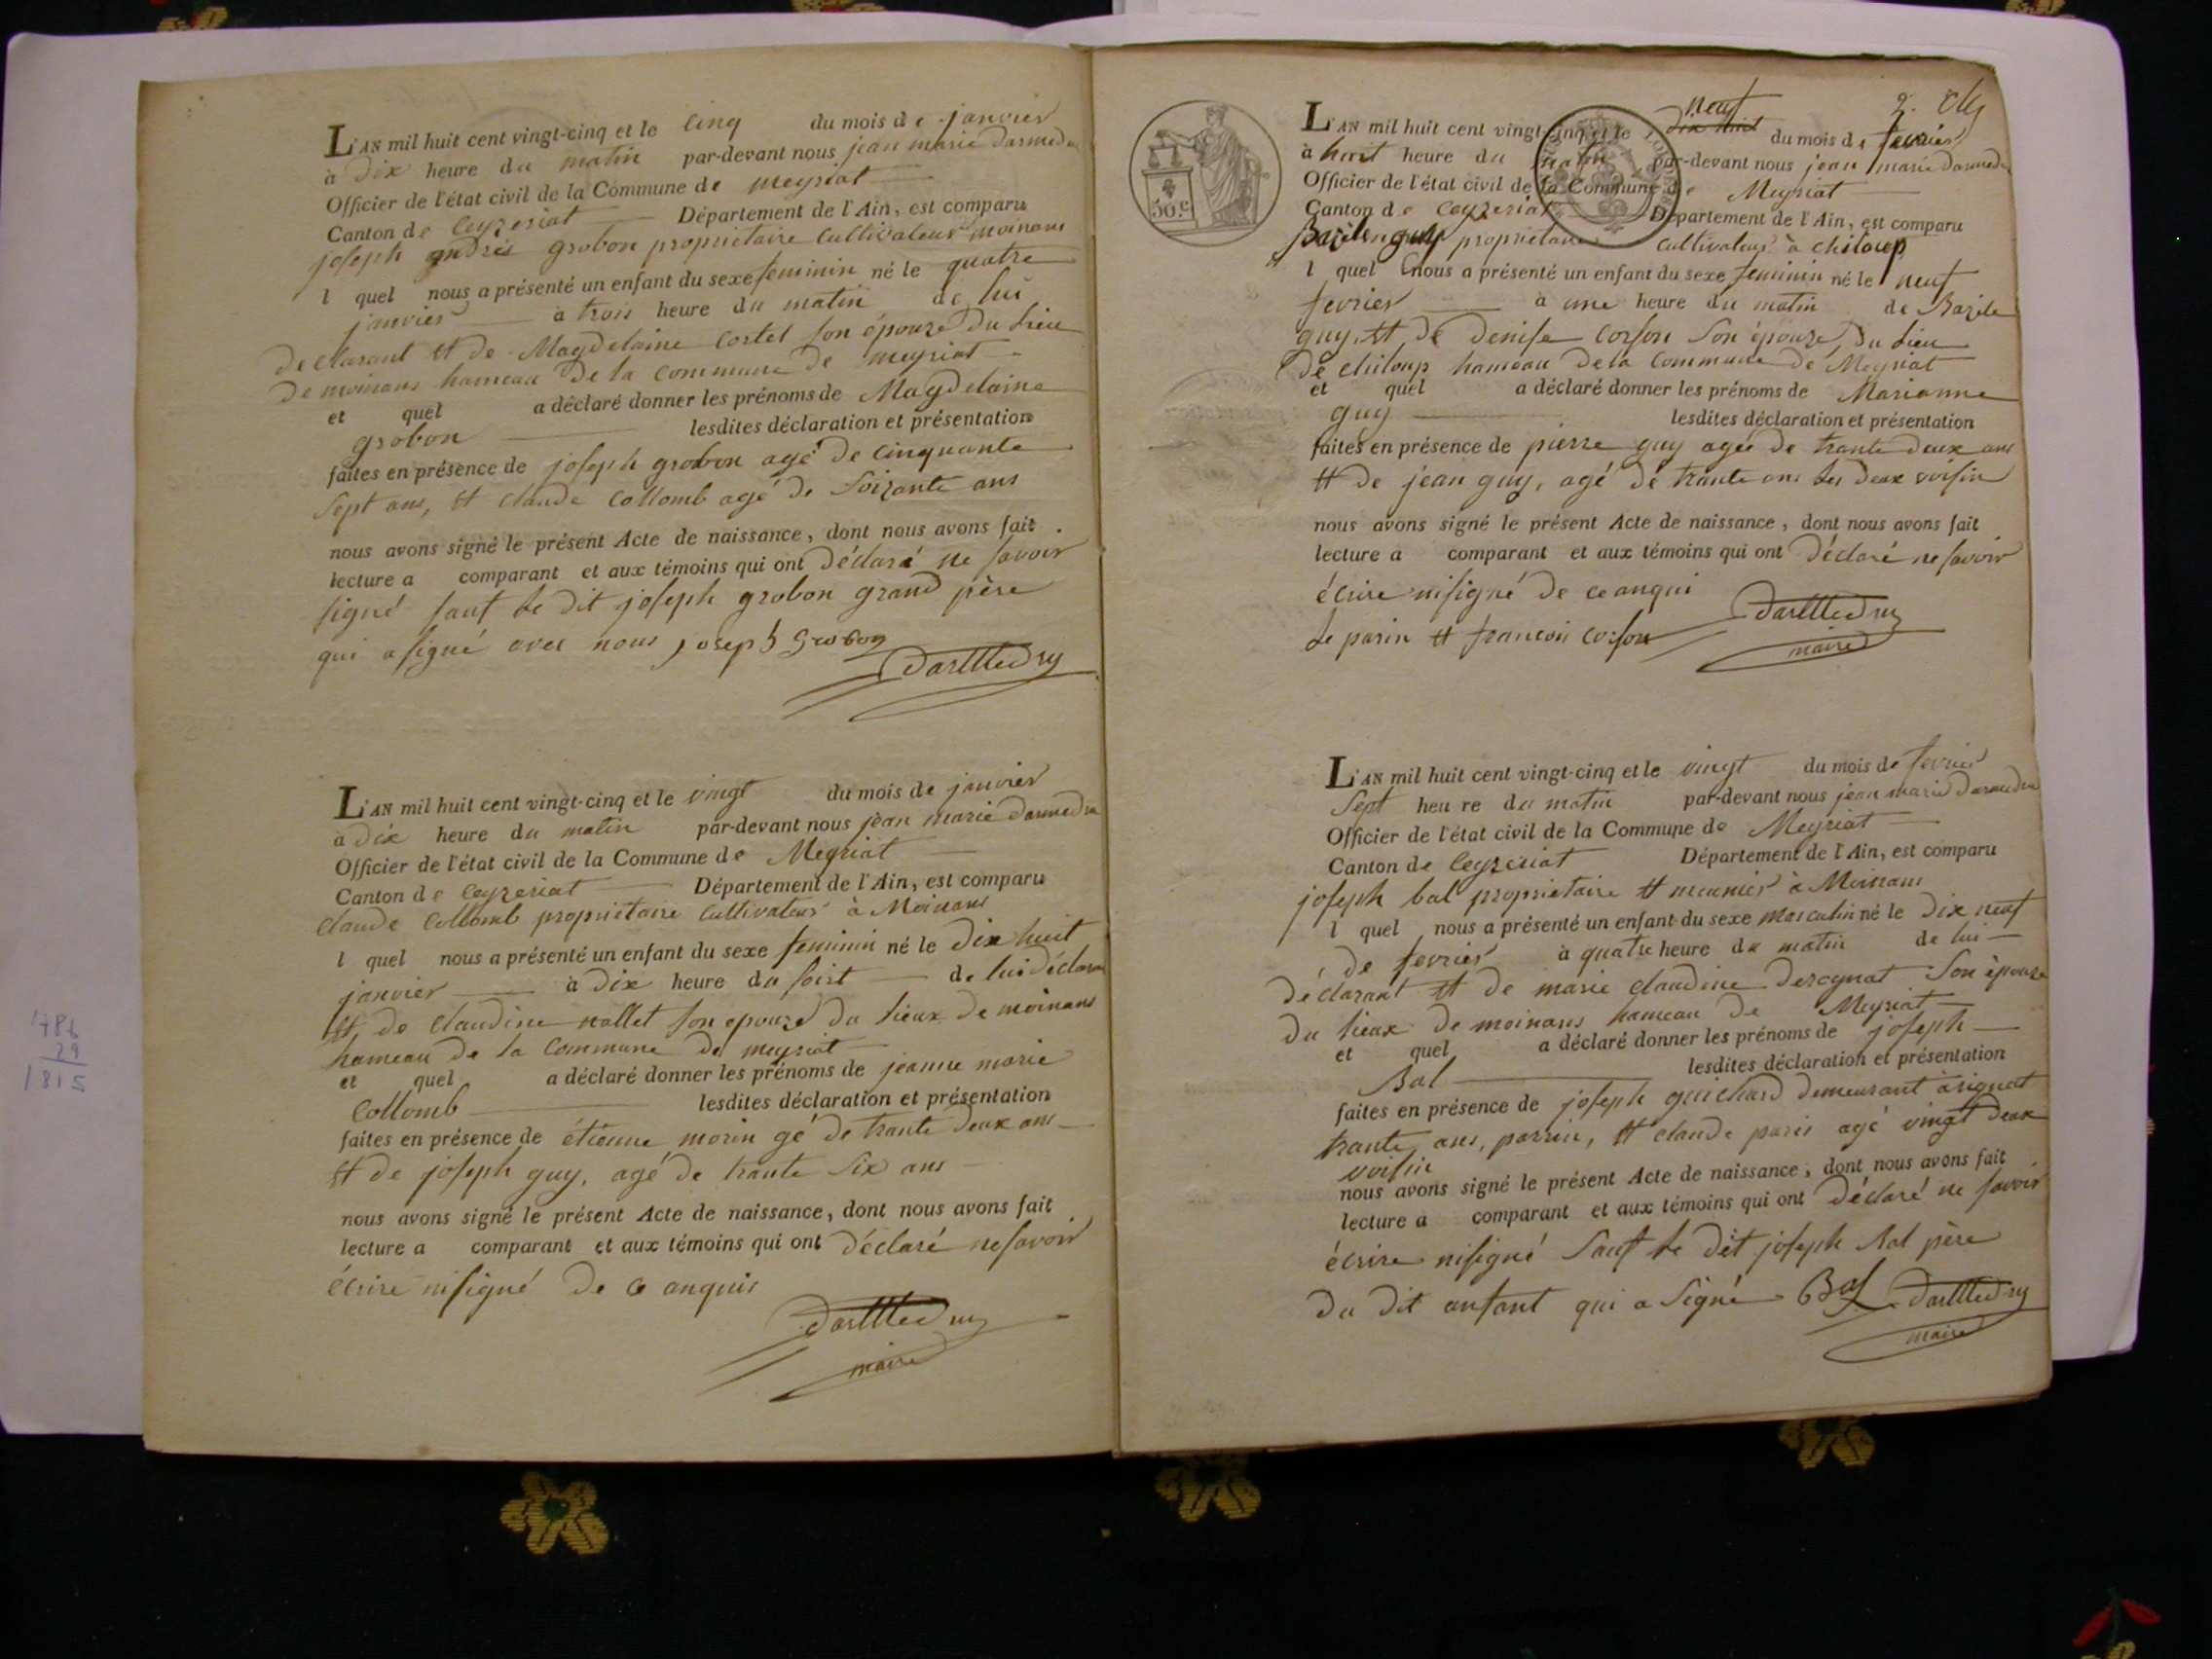 L'AN mil huit cent vingt-cinq et le cinq du mois de janvier
à Dix heure du matin par-devant nous jean marie
Officier de l'état civil de la Commune de meyriat
Canton de Ceyzeriat Département de l'Ain, est comparu
joseph andrés grobon proprietaire Cultivateur moinans
l quel nous a présenté un enfant du sexe feminin né le quatre
janvier à trois heure du matin de lui
declarant et de Magdelaine Cortet son épouze Du Lieu
De moinans hameau De la commune De meyriat
et quel a déclaré donner les prénoms de Magdelaine
grobon lesdites déclaration et présentation
faites en présence de joseph grobon agé De cinquante
Sept ans, et Claude Collomb agé de Soizante ans
nous avons signé le présent Acte de naissance, dont nous avons fait
lecture a comparant et aux témoins qui ont Déclaré ne savoir
signé sauf le Dit joseph grobon grand père
qui a signé avec nous joseph Grobon
L'AN mil huit cent vingt-cinq et le vingt du mois de janvier
à Dix heure du matin par-devant nous jean marie
Officier de l'état civil de la Commune de Meyriat
Canton de Ceyzeriat Département de l'Ain, est comparu
Claude Collomb proprietaire Cultivateur à Moinans
l quel nous a présenté un enfant du sexe feminin né le Dix huit
janvier à Dix heure du soirt de lui Déclaran
et de Claudine nallet son epouze Du Lieux De moinans
hameau De la Commune De meyriat
et quel a déclaré donner les prénoms de jeanne marie
Collomb lesdites déclaration et présentation
faites en présence de étienne morin gé De trante Deux ans
et De joseph guy, agé De trante Six ans
nous avons signé le présent Acte de naissance, dont nous avons fait
lecture a comparant et aux témoins qui ont Déclaré ne savoir
écrire ni signé De ce anquis
maire
1786
29
1815
2.
neuf
L'AN mil huit cent vingt-cinq et le dix huit du mois de fevrier
à huit heure du matin par-devant nous jean marie
Officier de l'état civil de la Commune de Meyriat
Canton de Ceyzeriat Département de l'Ain, est comparu
guy proprietaire Cultivateur à Chiloup
l quel nous a présenté un enfant du sexe feminin né le neuf
fevrier à une heure du matin de Bazile
guy et De Denise Corson Son épouze Du Lieu
De Chiloup hameau De la Commune De Meyriat
et quel a déclaré donner les prénoms de Marianne
guy lesdites déclaration et présentation
faites en présence de pierre guy agée De trante Deux ans
et De jean guy, agé De trante ans les Deux voisin
nous avons signé le présent Acte de naissance, dont nous avons fait
lecture a comparant et aux témoins qui ont Déclaré ne savoir
écrire ni signé De ce anqui
Le parin et francois Corson
maire
50.c
L'AN mil huit cent vingt-cinq et le vingt du mois de fevrier
Sept heu re du matin par-devant nous jean marie
Officier de l'état civil de la Commune de Meyriat
Canton de Ceyzeriat Département de l'Ain, est comparu
joseph bal proprietaire et meunier à Moinans
l quel nous a présenté un enfant du sexe masculin né le Dix neuf
De fevrier à quatre heure du matin de lui
Déclarant et De marie Claudine Son épouze
Du Lieux De moinans hameau De Meyriat
et quel a déclaré donner les prénoms de joseph
Bal lesdites déclaration et présentation
faites en présence de joseph guichard Demeurant à rignat
trante ans, parrin, et Claude paris agé vingt Deux
voisin
nous avons signé le présent Acte de naissance, dont nous avons fait
lecture a comparant et aux témoins qui ont Déclaré ne savoir
écrire ni signé Sauf le Dit joseph Bal père
Du Dit enfant qui a Signé Bal
maire